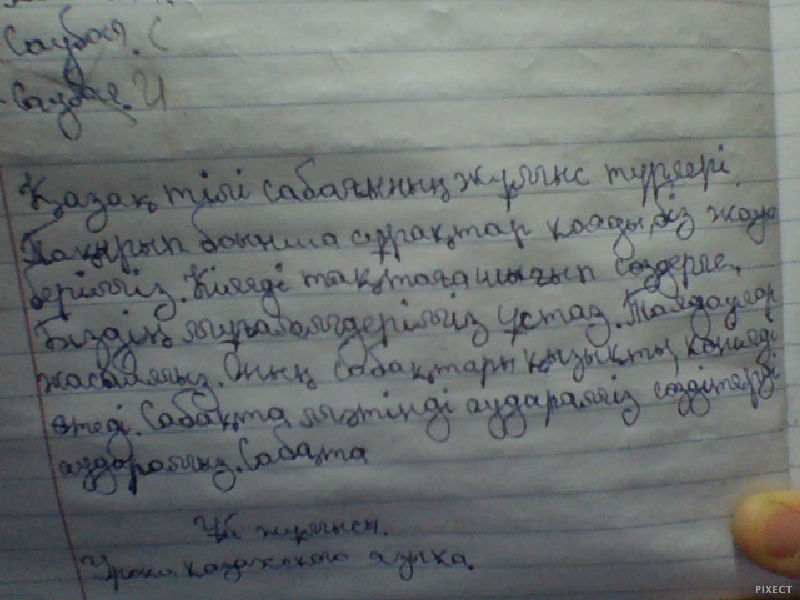 Саубол. С
Саубол. U
Қазақ тілі сабағының жұмыс түрлері
Тақырып боынша сұрақтар қояды, біз жауап
береміз. Кілеңді тақтаға шығып сөздерге,
Біздің мұғалімдеріміз ұстаз. Талдаулар
жасаймыз. Оның сабақтары қызықты, көңілді
өтеді. Сабақта мәтінді аударамыз сөздітерді
аударамыз. Сабақта
Үй жұмысы.
Уроки казахского языка.
PIXECT